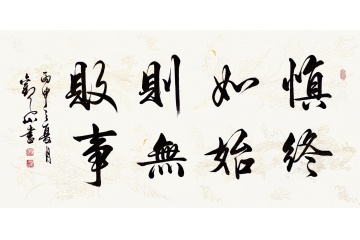 慎終
如始
則無
敗事
丙申之夏月